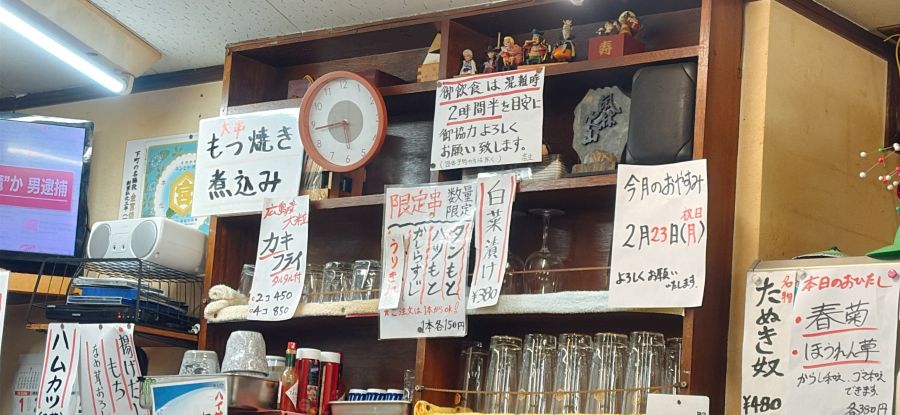 男逮捕
下町の名脇役
大串
もつ焼き
煮込み
御飲食は混雑時
2時間半を目安に
御協力よろしく
お願い致します。
店主
風林
寿
広島産
大粒
カキ
フライ
タルタル付
2コ 450
4コ 850
限定串
数量
限定
タンもと
ハツもと
からすじ
うりきれ
ご注文は1本からok!
1本各150円
白菜漬け
¥380
今月のおやすみ
祝日
2月23日(月)
よろしくお願い
いたします。
名物
たぬき奴
¥480
本日のおひたし
・春菊
・ほうれん草
からし和え、ゴマ和え
できます。
各350円
ハムカツ
揚げもち